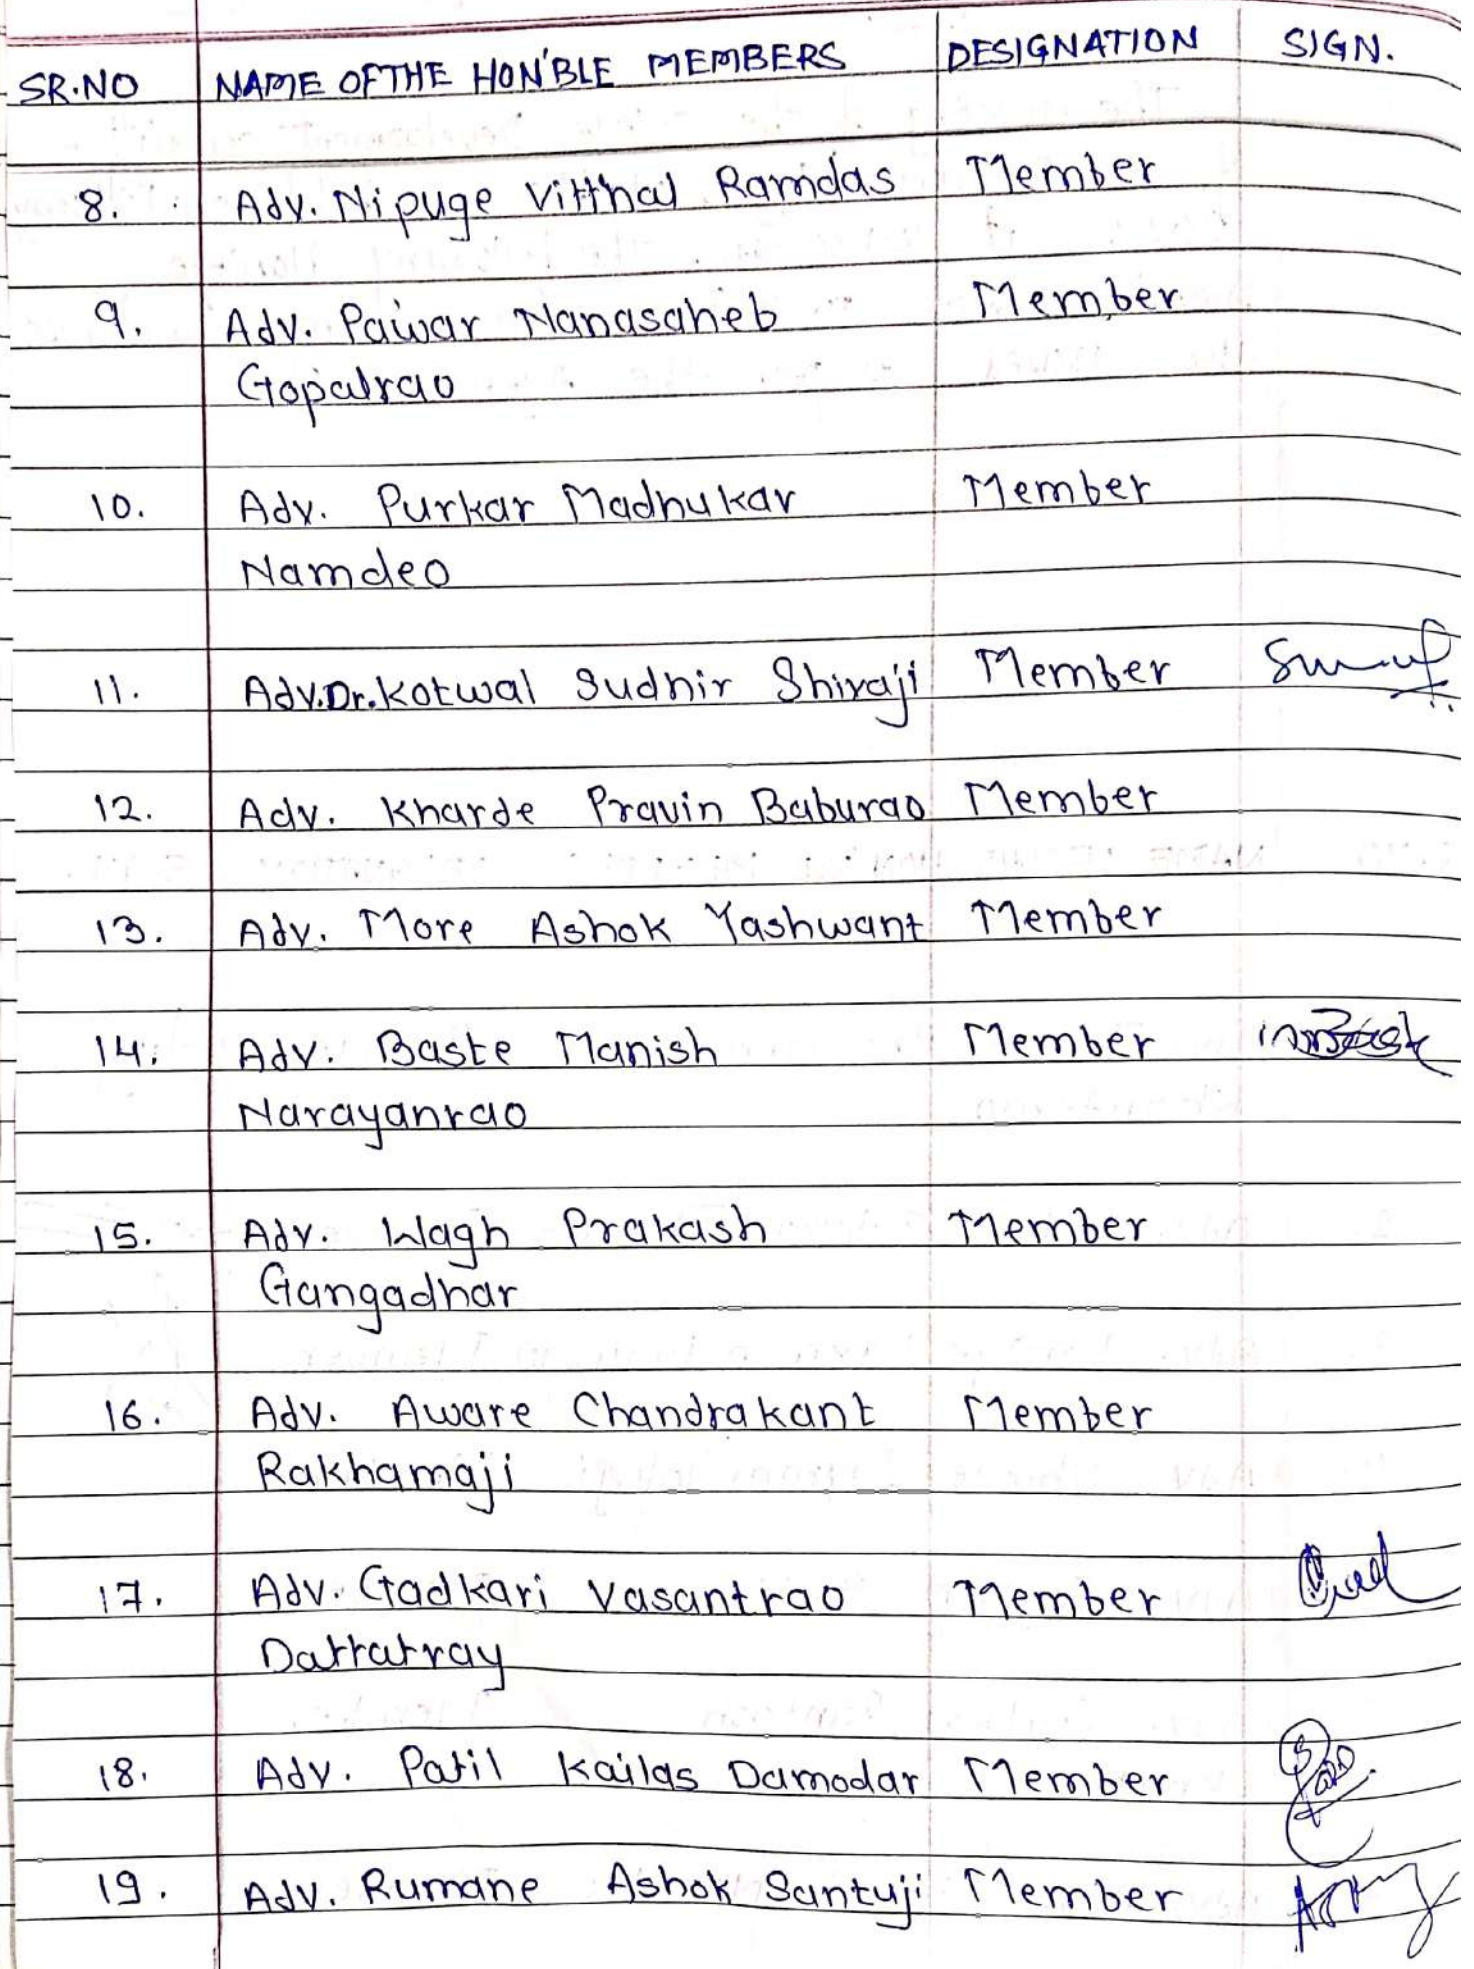 SR.NO NAME OF THE HON'BLE MEMBERS DESIGNATION SIGN.
8. Adv. Nipuge Vitthal Ramdas Member
9. Adv. Pawar Nanasaheb Member
Gopalrao
10. Adv. Purkar Madhukar Member
Namdeo
11. Adv. Dr. Kotwal Sudhir Shivaji Member
12. Adv. Kharde Pravin Baburao Member
13. Adv. More Ashok Yashwant Member
14. Adv. Baste Manish Member
Narayanrao
15. Adv. Wagh Prakash Member
Gangadhar
16. Adv. Aware Chandrakant Member
Rakhamaji
17. Adv. Gadkari Vasantrao Member
Dattatray
18. Adv. Patil Kailas Damodar Member
19. Adv. Rumane Ashok Santuji Member